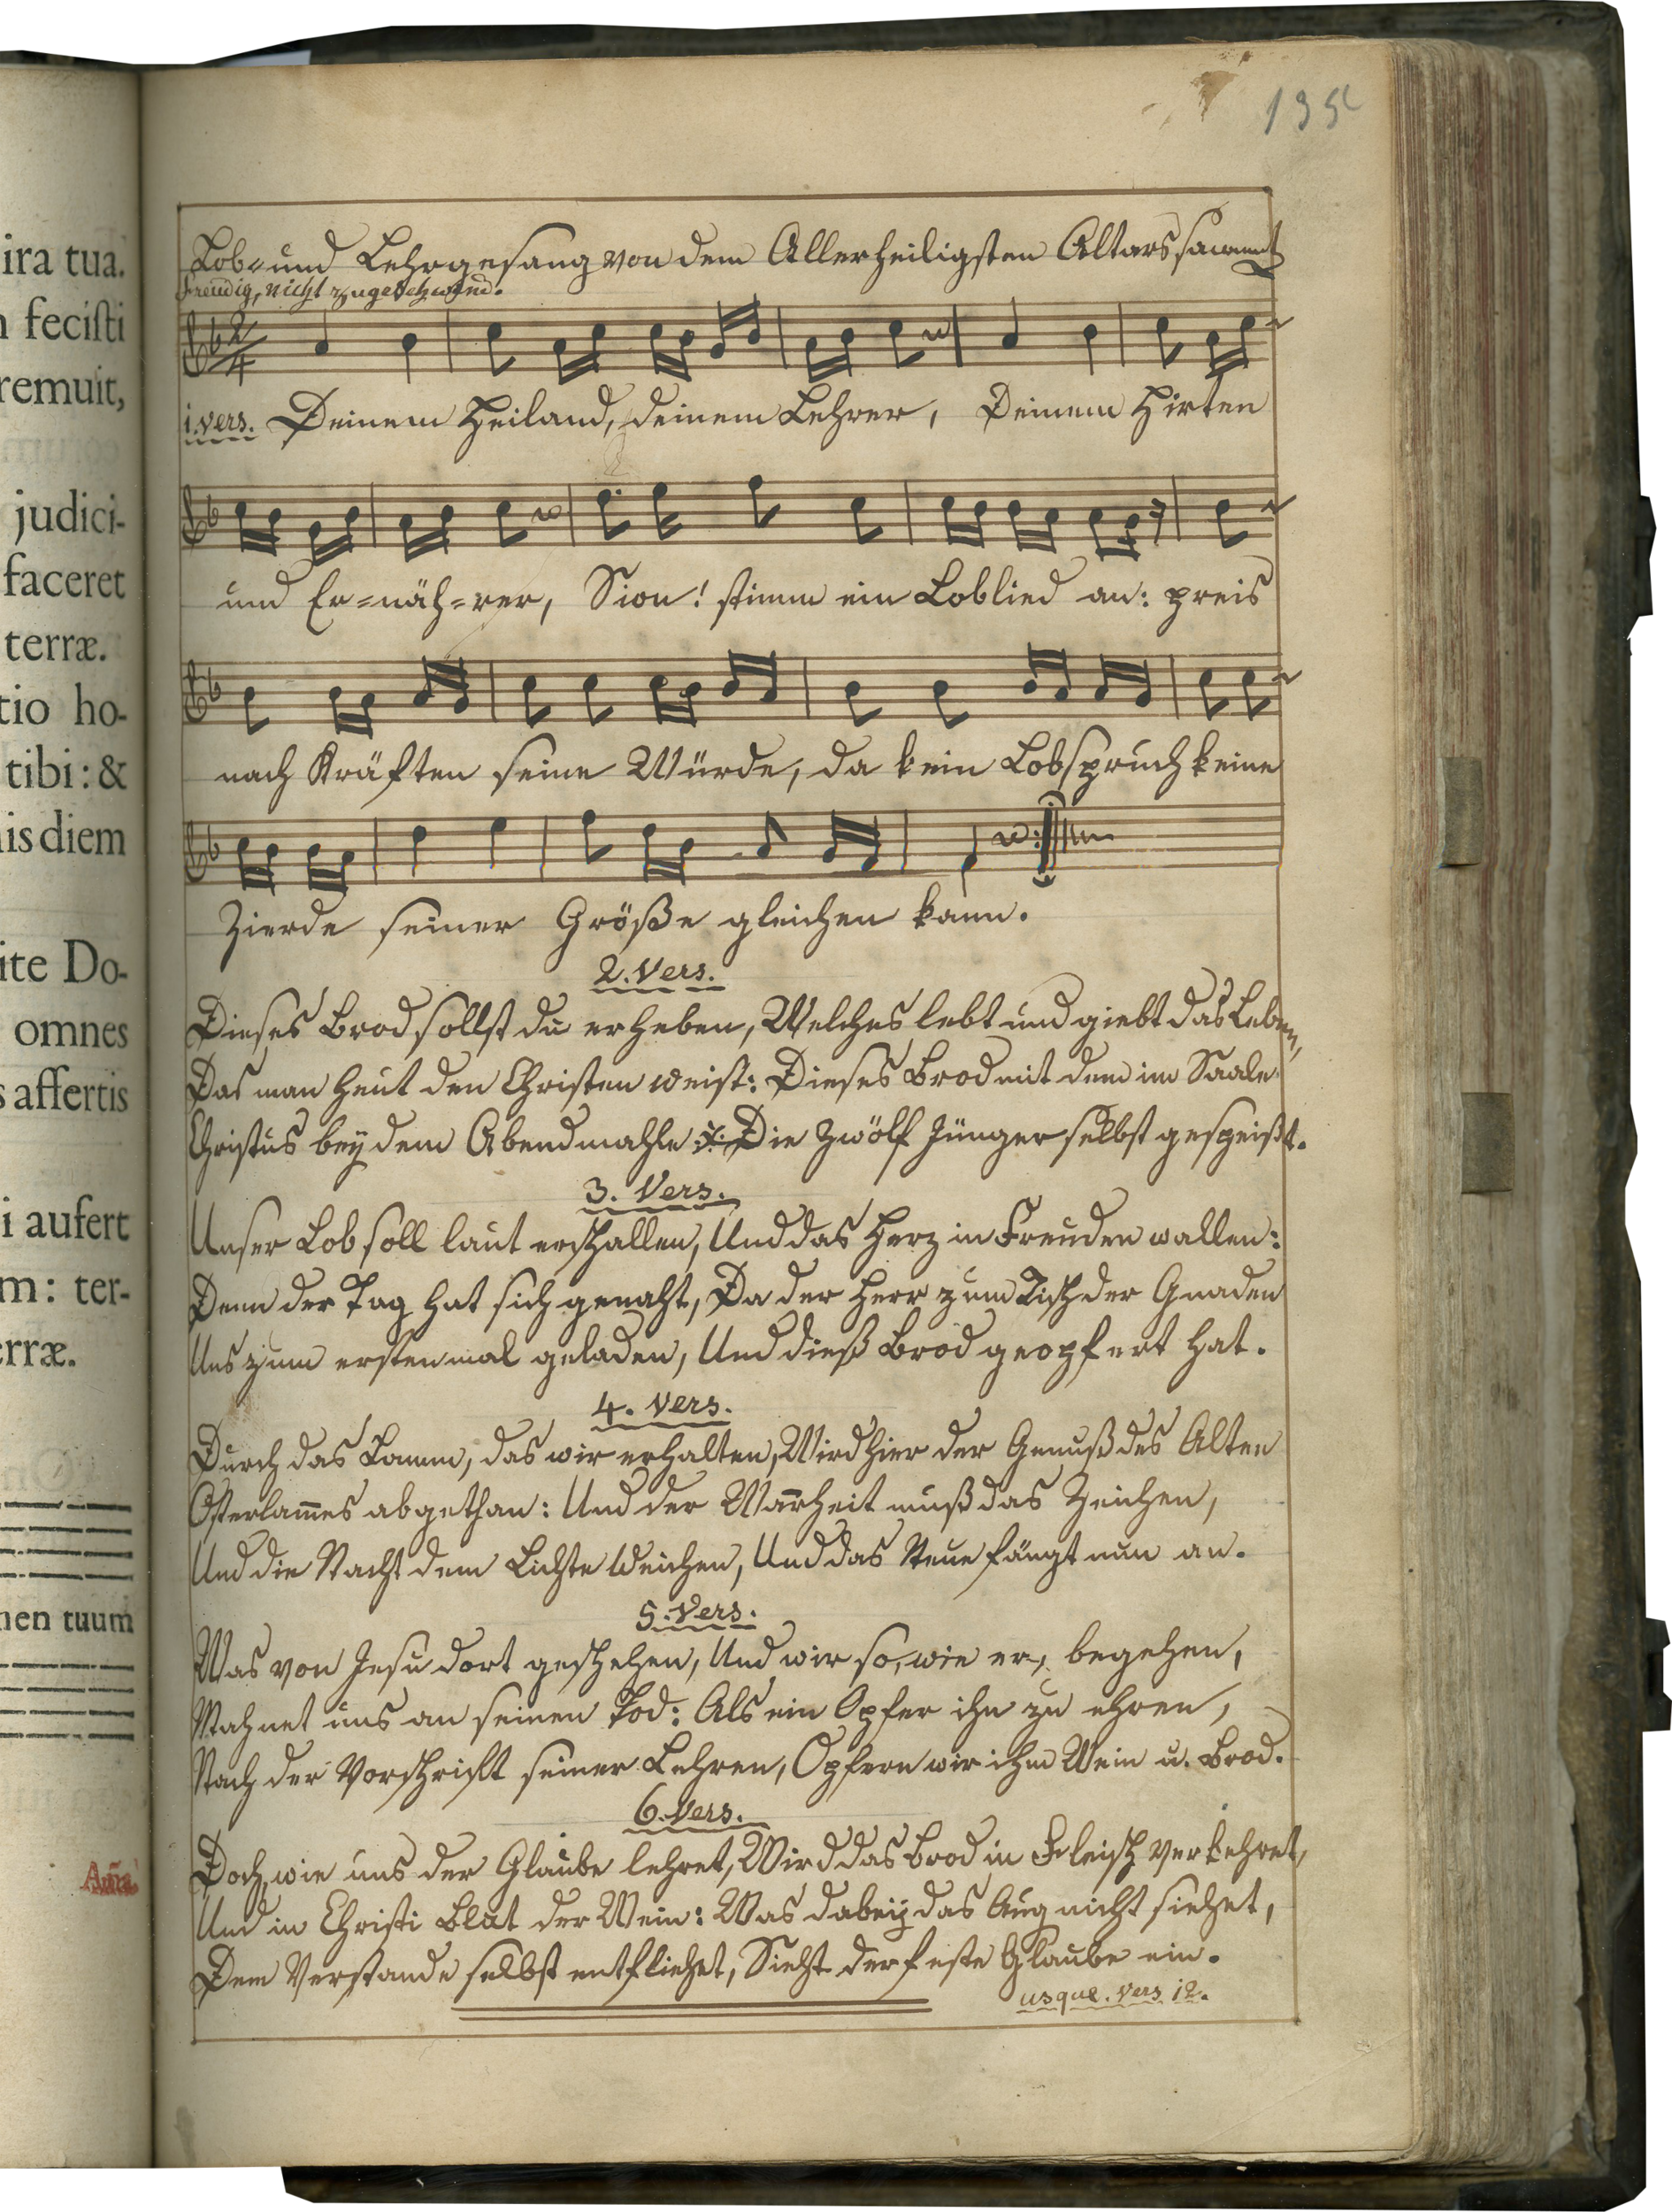 ira tua.
fecisti
remuit,
judici-
faceret
terræ.
tio ho-
tibi: &
is diem
ite Do-
omnes
s affertis
i aufert
m: ter-
rræ.
men tuum
Aña
Lob= und Lehrgesang von dem Allerheiligsten Altarssacrament
freudig, nicht zu geschwind.
2/4
1. vers. Deinem Heiland, deinem Lehrer, Deinem Hirten
und Er=näh=rer, Sion! stimm ein Loblied an: preis
nach Kräften seine Würde, da kein Lobspruch keine
Zierde seiner Größe gleichen kann.
2. Vers.
Dieses Brod sollst du erheben, Welches lebt und giebt das Leben,
Das man heut den Christen weist: Dieses Brod mit dem im Saale
Christus bey dem Abendmahle Die zwölf Jünger selbst gespeißt.
3. Vers.
Unser Lob soll laut erschallen, Und das Herz in Freuden wallen:
Denn der Tag hat sich genaht, Da der Herr zum Tisch der Gnaden
Uns zum erstenmal geladen, Und dieß Brod geopfert hat.
4. Vers.
Durch das Lamm, das wir erhalten, Wird hier der Genuß des Alten
Osterlam̅es abgethan: Und der Warheit muß das Zeichen,
Und die Nacht dem Lichte weichen, Und das Neue fängt nun an.
5. Vers.
Was von Jesu dort geschehen, Und wir so, wie er, begehen,
Mahnet uns an seinen Tod: Als ein Opfer ihn zu ehren,
Nach der Vorschrift seiner Lehren, Opfern wir ihm Wein u. Brod.
6. Vers.
Doch, wie uns der Glaube lehret, Wird das Brod in Fleisch verkehret,
Und in Christi Blut der Wein: Was dabey das Aug nicht siehet,
Dem Verstande selbst entfliehet, Sieht der feste Glaube ein.
usque. vers 12.